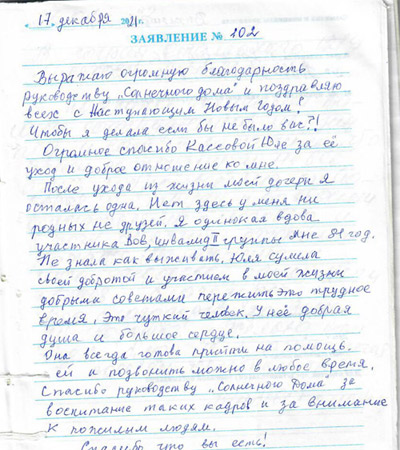 17. декабря 2021г.
ЗАЯВЛЕНИЕ № 102
Выражаю огромную благодарность
руководству „Солнечного дома" и поздравляю
всех с Наступающим Новым Годом!
Чтобы я делала если бы не было вас?!
Огромное спасибо Кассовой Юле за её
уход и доброе отношение ко мне.
После ухода из жизни моей дочери я
осталась одна. Нет здесь у меня ни
родных не друзей. Я одинокая вдова
участника Вов, инвалид II группы мне 81 год.
Не знала как выживать. Юля сумела
своей добротой и участием в моей жизни
добрыми советами пережить это трудное
время. Это чуткий человек. У неё добрая
душа и большое сердце.
Она всегда готова прийти на помощь.
ей и позвонить можно в любое время.
Спасибо руководству „Солнечного Дома" за
воспитание таких кадров и за внимание
к пожилым людям.
Спасибо что вы есть!